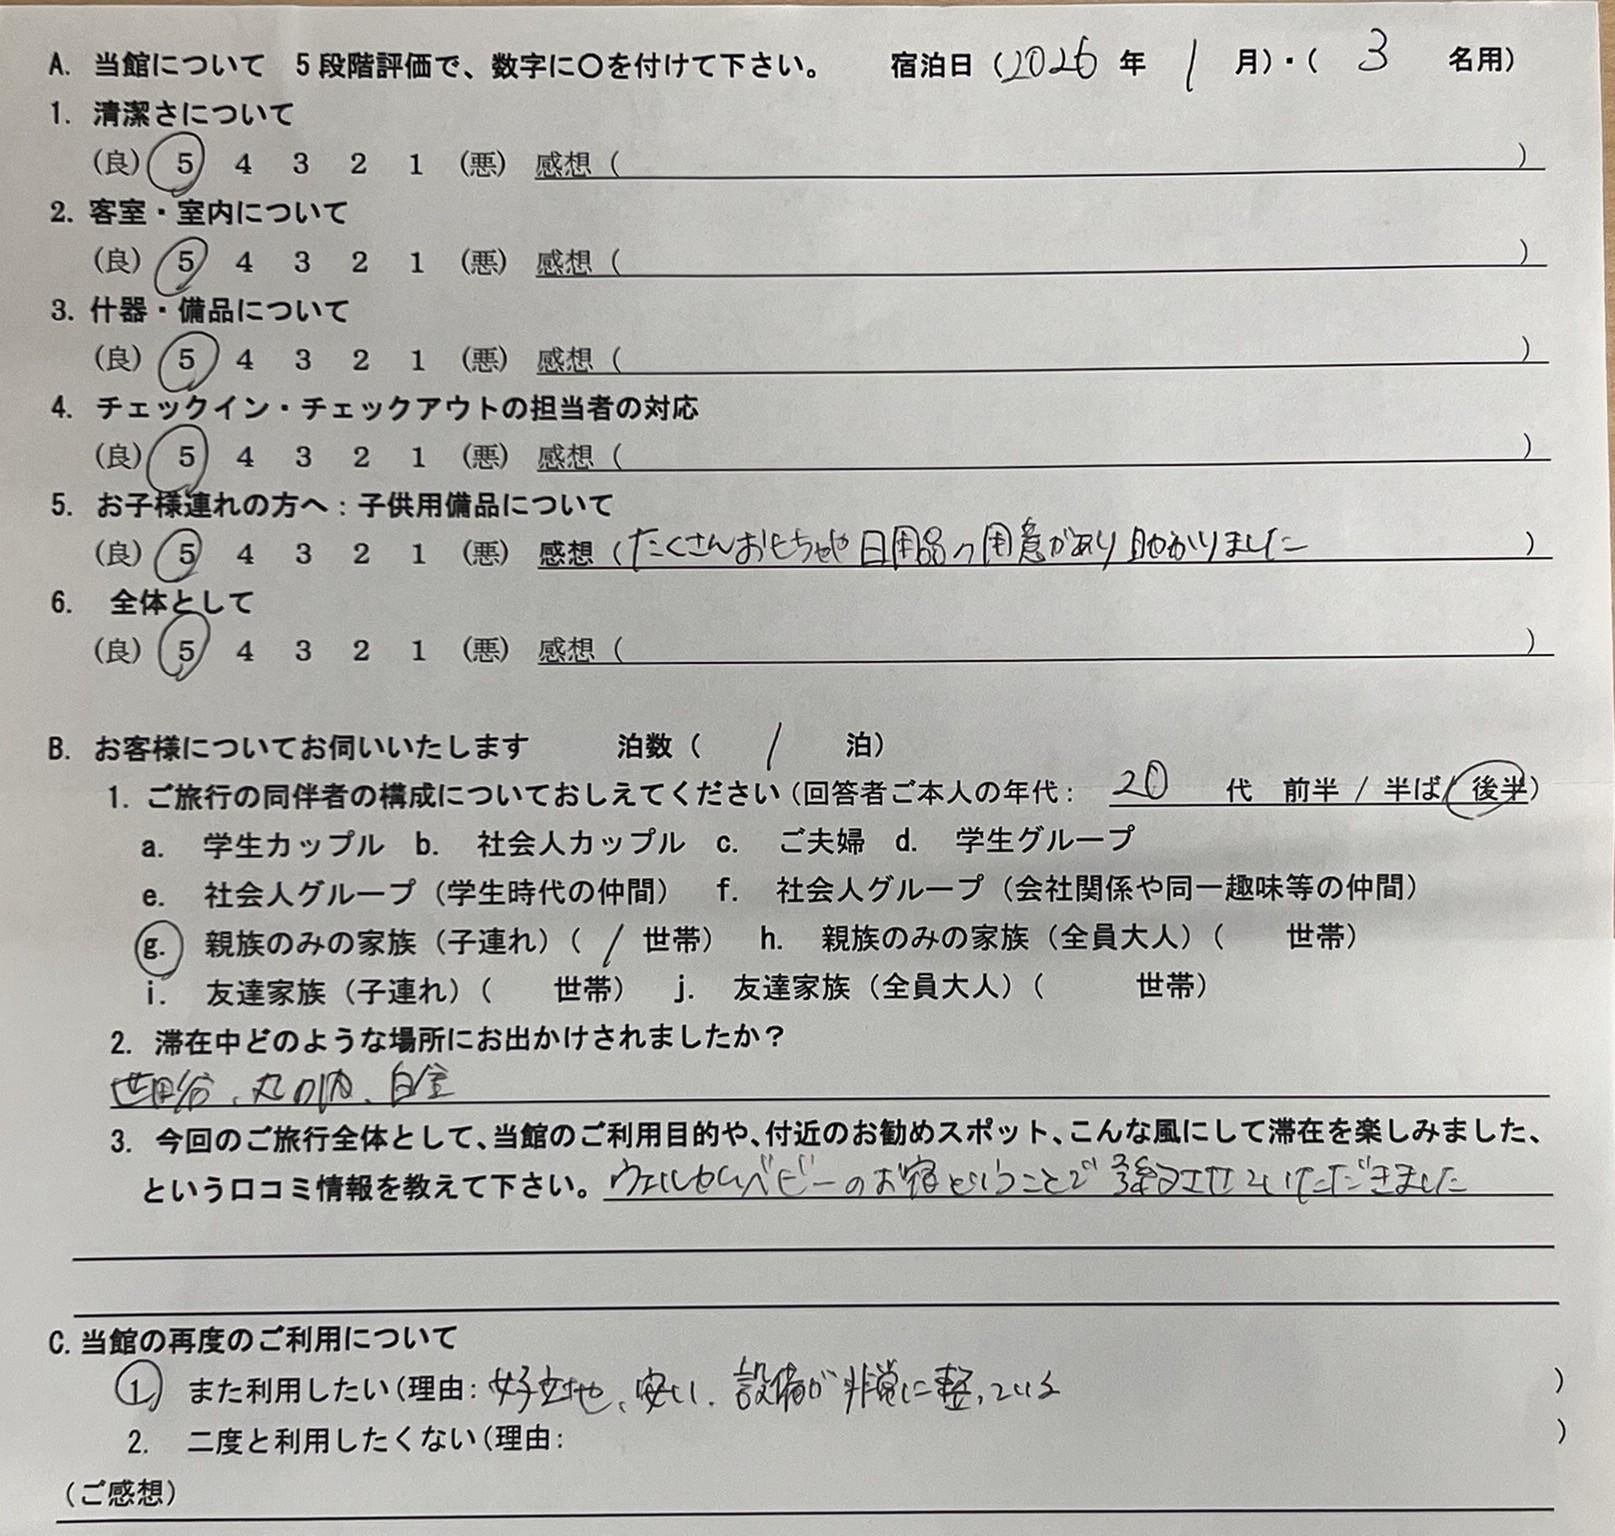 A. 当館について 5段階評価で、数字に〇を付けて下さい。 宿泊日（2026年 1 月）・（ 3 名用）
1. 清潔さについて
（良） 5 4 3 2 1 （悪） 感想（ ）
2. 客室・室内について
（良） 5 4 3 2 1 （悪） 感想（ ）
3. 什器・備品について
（良） 5 4 3 2 1 （悪） 感想（ ）
4. チェックイン・チェックアウトの担当者の対応
（良） 5 4 3 2 1 （悪） 感想（ ）
5. お子様連れの方へ：子供用備品について
（良） 5 4 3 2 1 （悪） 感想（たくさんおもちゃや日用品の用意があり助かりました ）
6. 全体として
（良） 5 4 3 2 1 （悪） 感想（ ）
B. お客様についてお伺いいたします 泊数（ 1 泊）
1. ご旅行の同伴者の構成についておしえてください（回答者ご本人の年代： 20 代 前半 / 半ば/ 後半）
a. 学生カップル b. 社会人カップル c. ご夫婦 d. 学生グループ
e. 社会人グループ（学生時代の仲間） f. 社会人グループ（会社関係や同一趣味等の仲間）
g. 親族のみの家族（子連れ）（ 1 世帯） h. 親族のみの家族（全員大人）（ 世帯）
i. 友達家族（子連れ）（ 世帯） j. 友達家族（全員大人）（ 世帯）
2. 滞在中どのような場所にお出かけされましたか？
世田谷、丸の内、白金
3. 今回のご旅行全体として、当館のご利用目的や、付近のお勧めスポット、こんな風にして滞在を楽しみました、
という口コミ情報を教えて下さい。ウェルカムベビーのお宿ということで予約させていただきました
C. 当館の再度のご利用について
1. また利用したい（理由：好立地、安い、設備が非常に整っている ）
2. 二度と利用したくない（理由： ）
（ご感想）